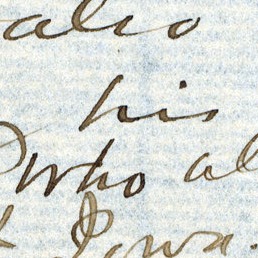 also
his
who al
Iowa.